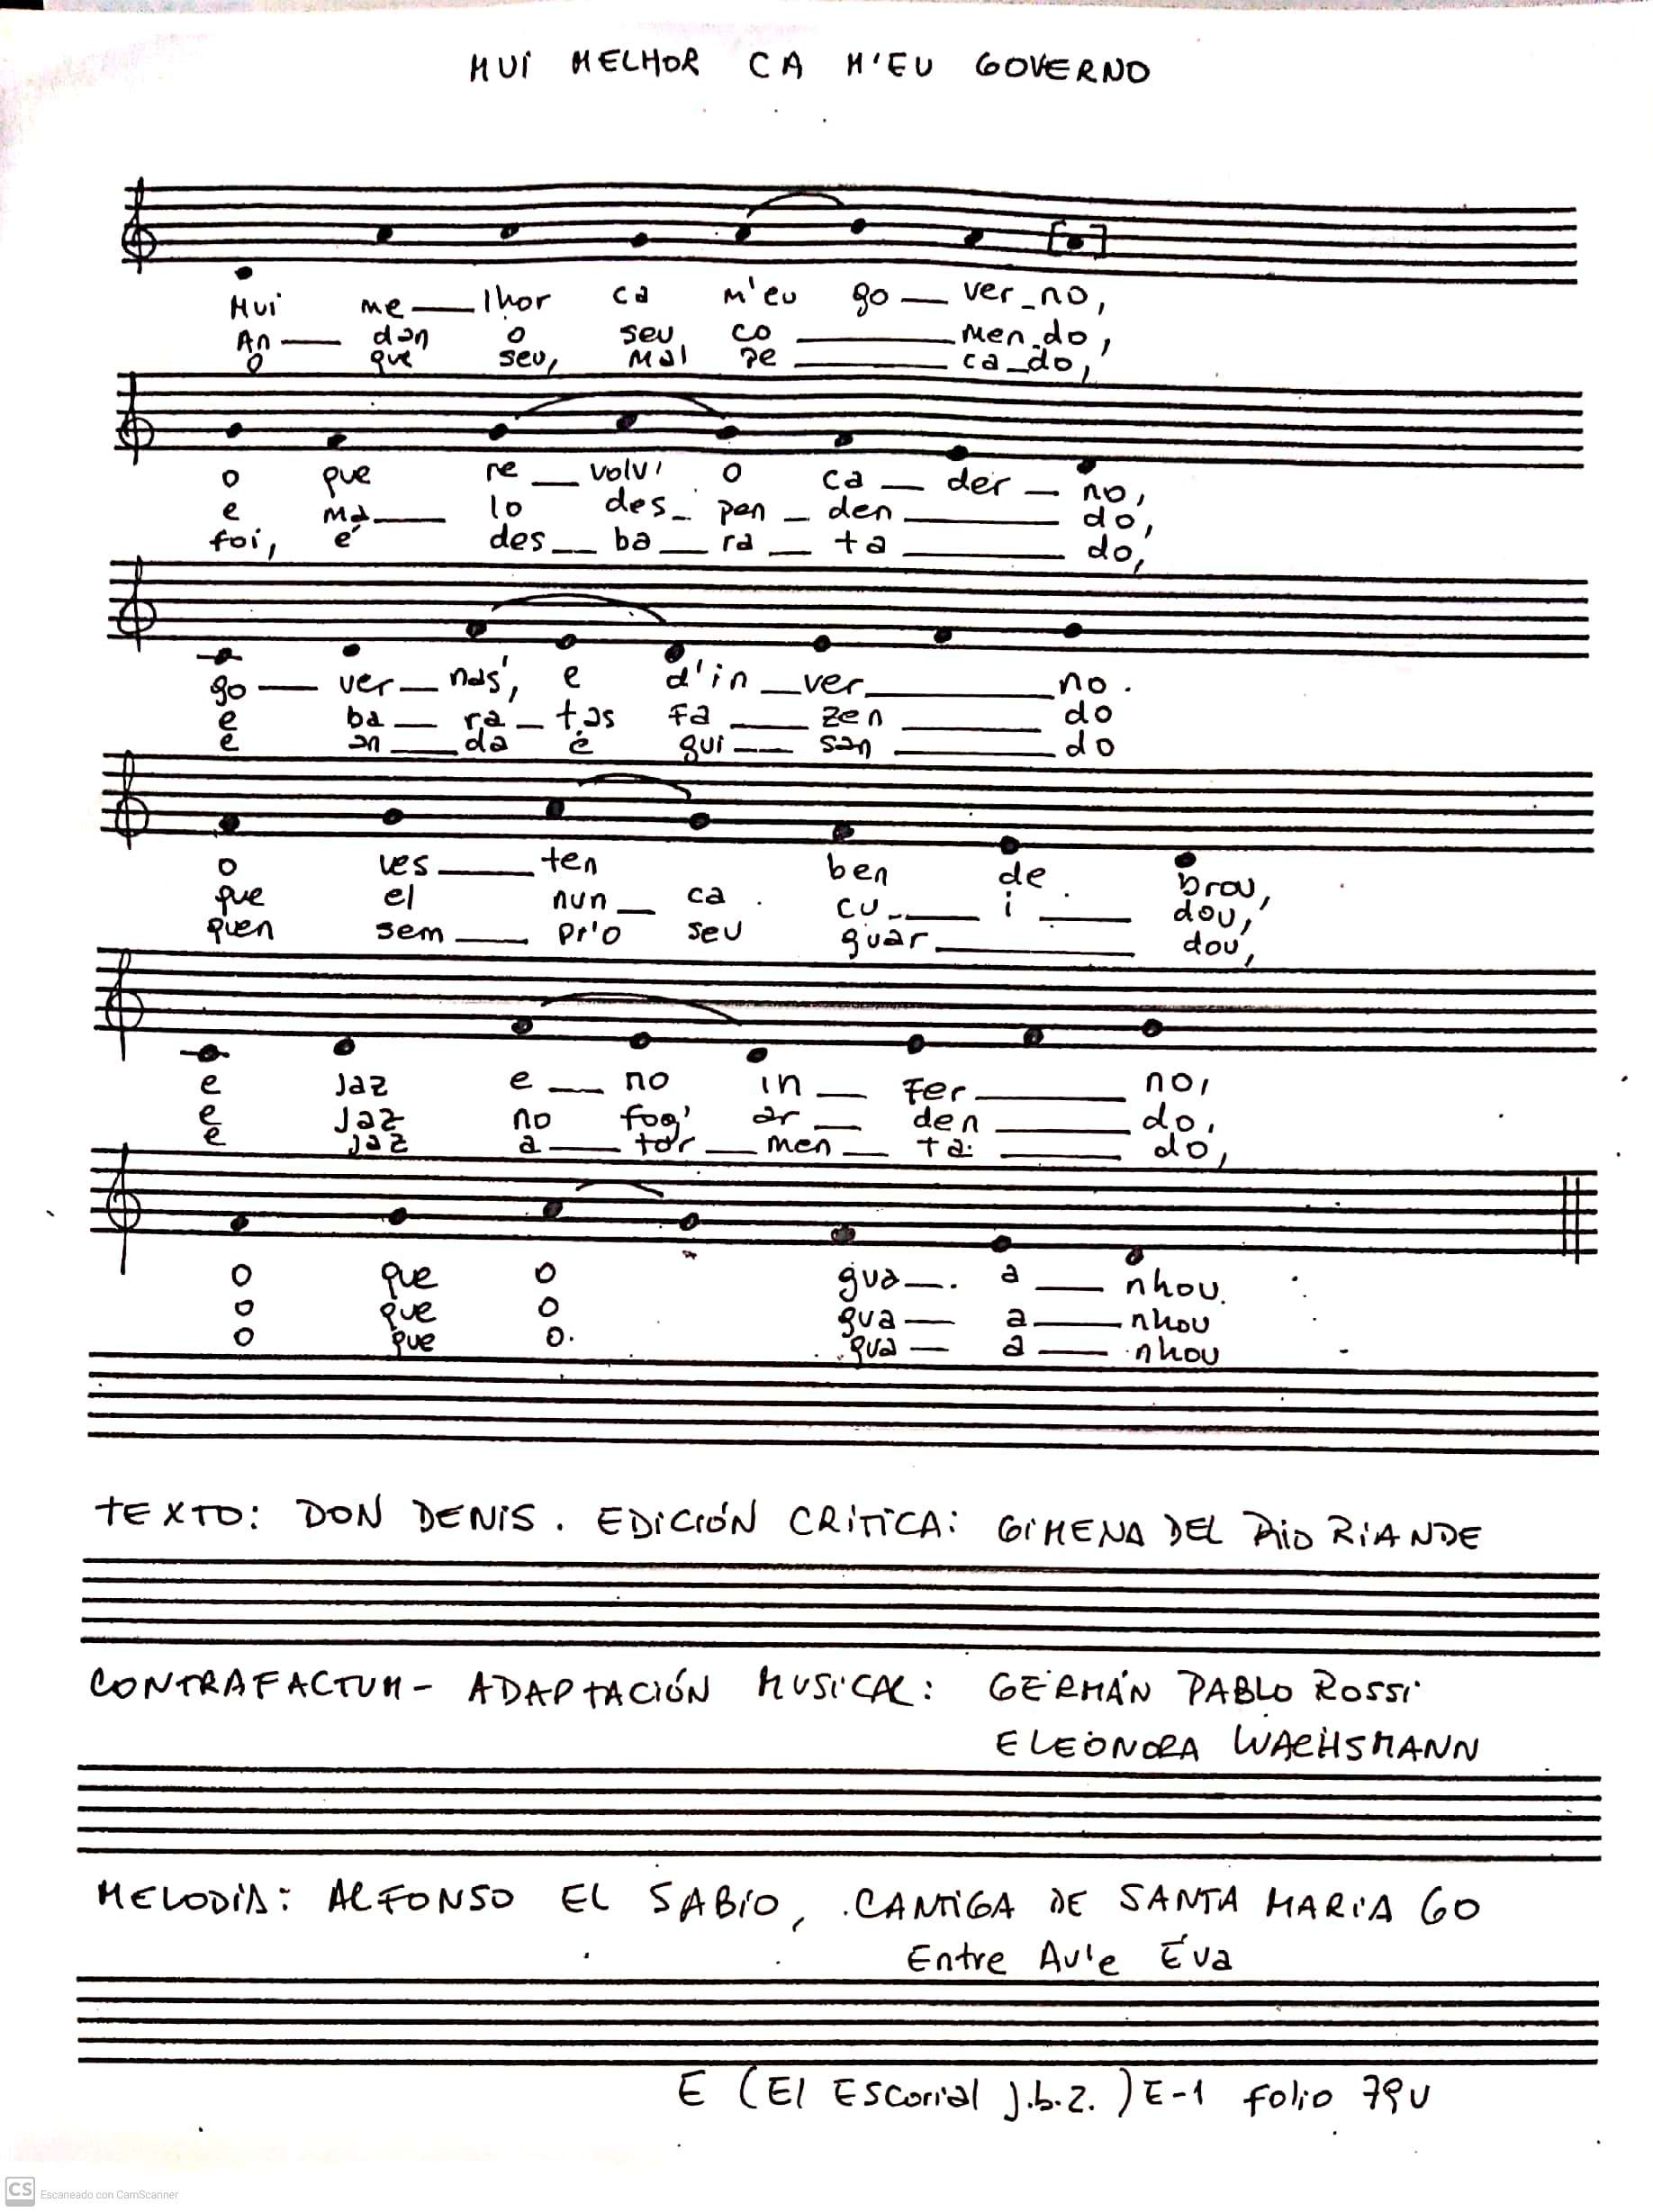 MUI MELHOR CA M'EU GOVERNO
Mui me — lhor ca m'eu go — ver_no,
An — dan o seu co — men_do,
O que seu, mal pe — ca_do,
o que re — volvi o ca — der — no,
e ma — lo des_ pen _ den — do,
foi, é des — ba — ra — ta — do,
go — ver — nas', e d'in — ver — no.
e ba — ra — tas fa — zen — do
e an — da é gui — san — do
o ves — ten ben de brou,
que el nun — ca cu — i — dou,
quen sem — pr'o seu guar — dou,
e jaz e — no in — fer — no,
e jaz no fog' ar — den — do,
e jaz a — tor — men — ta — do,
o que o gua — a — nhou.
o que o gua — a — nhou
o que o gua — a — nhou
TEXTO: DON DENIS. EDICIÓN CRITICA: GIMENA DEL RIO RIANDE
CONTRAFACTUM - ADAPTACIÓN MUSICAL: GERMÁN PABLO ROSSI
ELEONORA WACHSMANN
MELODIA: ALFONSO EL SABIO, CANTIGA DE SANTA MARIA 60
Entre Av'e Éva
E (El Escorial j.b.2.) E-1 folio 79v
CS Escaneado con CamScanner